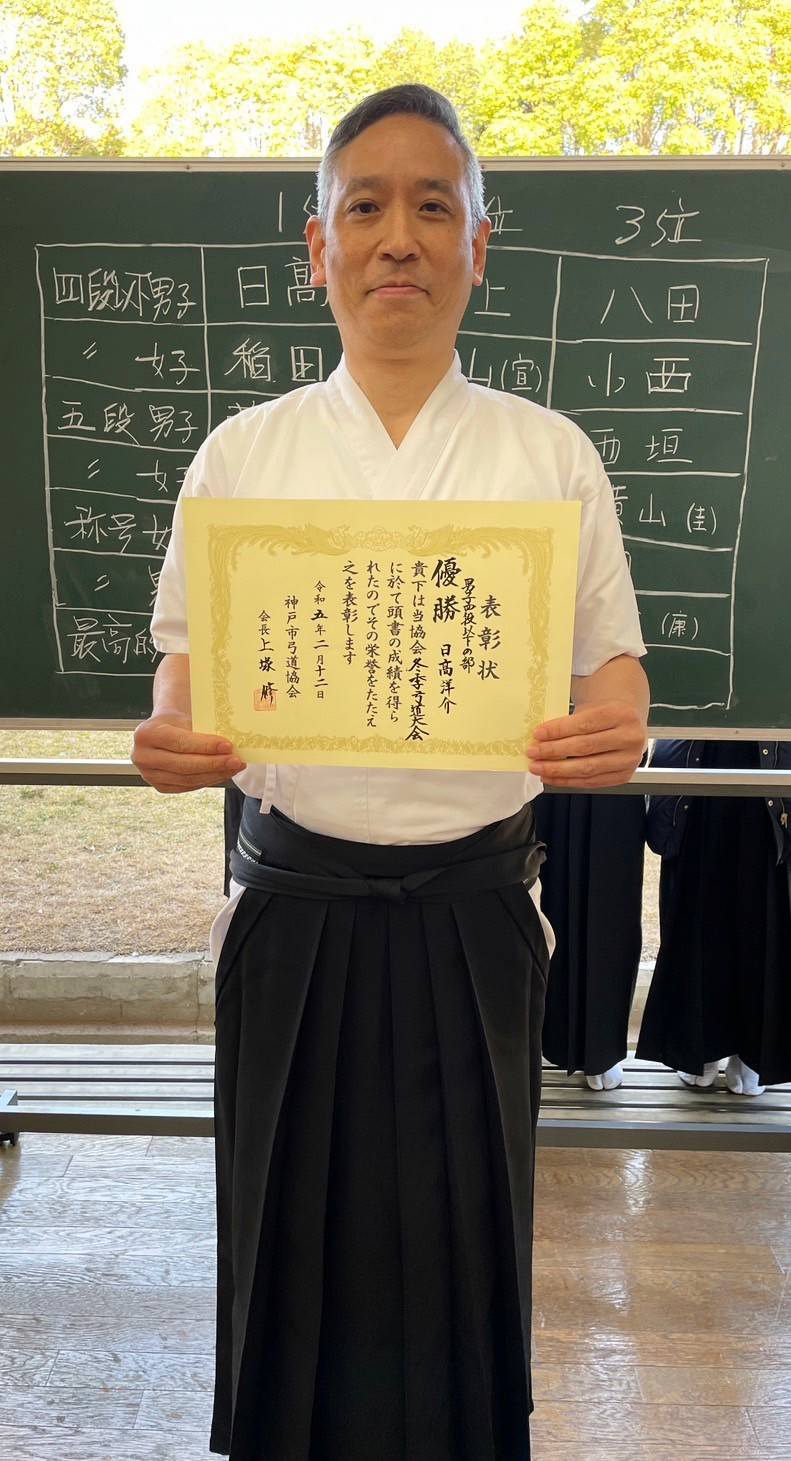 1位 3位
四段以下男子 日髙 上 八田
〃 女子 稲田 山(宣) 小西
五段男子 西垣
〃 女子 横山(圭)
称号女
〃
最高的 (康)
表彰状
男子四段以下の部
優勝 日高洋介
貴下は当協会冬季弓道大会
に於て頭書の成績を得ら
れたのでその栄誉をたたえ
之を表彰します
令和五年二月十二日
神戸市弓道協会
会長 上塚